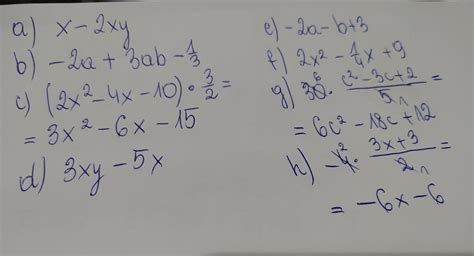 a) x - 2xy
b) -2a + 3ab - 1/3
c) (2x² - 4x - 10) · 3/2 =
= 3x² - 6x - 15
d) 3xy - 5x
e) -2a - b + 3
f) 2x² - 1/4x + 9
g) 30⁶ · (c² - 3c + 2)/5₁ =
= 6c² - 18c + 12
h) -4² · (3x + 3)/2₁ =
= -6x - 6